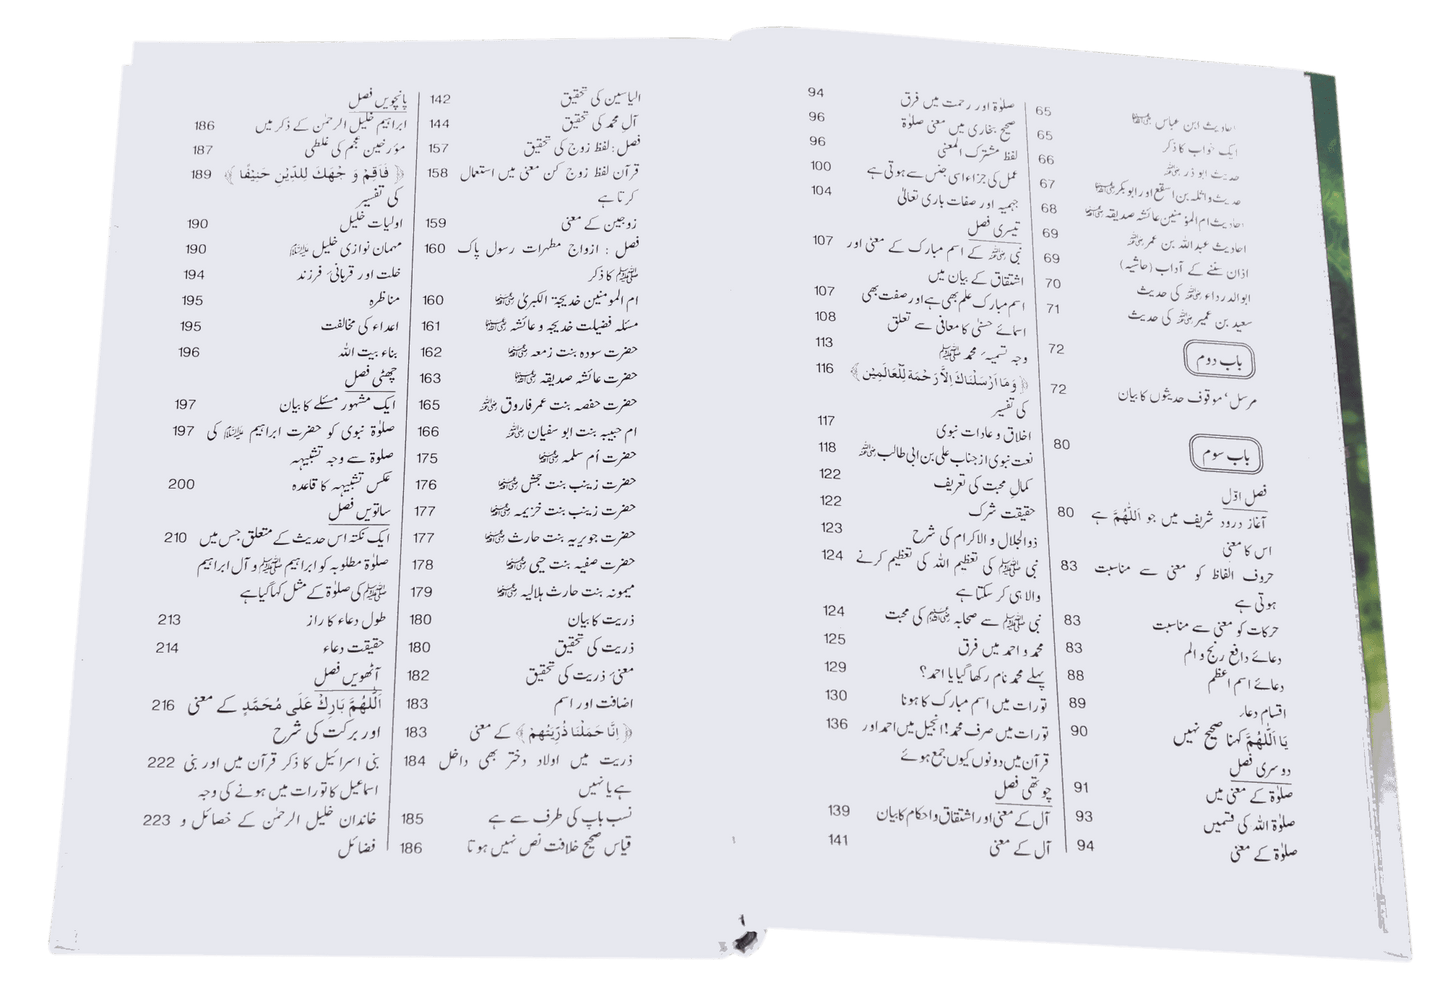 احادیث ابن عباس ﷠ 65
ایک خواب کا ذکر 65
حدیث ابو ذر ﷜ 66
حدیث واثلہ بن اسقع اور ابوبکر ﷠ 67
احادیث ام المؤمنین عائشہ صدیقہ ﷞ 68
احادیث عبداللہ بن عمر ﷠ 69
اذان سننے کے آداب (حاشیہ) 69
ابوالدرداء ﷜ کی حدیث 70
سعید بن عمیر ﷜ کی حدیث 71
باب دوم 72
مرسل، موقوف حدیثوں کا بیان 72
باب سوم 80
فصل اوّل
آغاز درود شریف میں جو اَللّٰهُمَّ ہے 80
اس کا معنی
حروف الفاظ کو معنی سے مناسبت 83
ہوتی ہے
حرکات کو معنی سے مناسبت 83
دعائے دافع رنج و الم 83
دعائے اسم اعظم 88
اقسام دعاء 89
یَا اَللّٰهُمَّ کہنا صحیح نہیں 90
دوسری فصل
صلوٰۃ کے معنی میں 91
صلوٰۃ اللہ کی قسمیں 93
صلوٰۃ کے معنی 94
صلوٰۃ اور رحمت میں فرق 94
صحیح بخاری میں معنی صلوٰۃ 96
لفظ مشترک المعنی 96
عمل کی جزاء اسی جنس سے ہوتی ہے 100
جہمیہ اور صفات باری تعالیٰ 104
تیسری فصل
نبی ﷺ کے اسم مبارک کے معنی اور 107
اشتقاق کے بیان میں
اسم مبارک علم بھی ہے اور صفت بھی 107
اسمائے حسنٰی کا معانی سے تعلق 108
وجہ تسمیہ محمد ﷺ 113
﴿وَمَا اَرْسَلْنَاكَ اِلاَّ رَحْمَةً لِّلْعَالَمِيْن﴾ 116
کی تفسیر
اخلاق و عادات نبوی 117
نعت نبوی از جناب علی بن ابی طالب ﷜ 118
کمالِ محبت کی تعریف 122
حقیقت شرک 122
ذوالجلال والاکرام کی شرح 123
نبی ﷺ کی تعظیم اللہ کی تعظیم کرنے 124
والا ہی کر سکتا ہے
نبی ﷺ سے صحابہ ﷢ کی محبت 124
محمد و احمد میں فرق 125
پہلے محمد نام رکھا گیا یا احمد؟ 129
تورات میں اسم مبارک کا ہونا 130
تورات میں صرف محمد! انجیل میں احمد اور 136
قرآن میں دونوں کیوں جمع ہوئے
چوتھی فصل
آل کے معنی اور اشتقاق و احکام کا بیان 139
آل کے معنی 141
الیاسین کی تحقیق 142
آلِ محمد کی تحقیق 144
فصل: لفظ زوج کی تحقیق 157
قرآن لفظ زوج کن معنی میں استعمال 158
کرتا ہے
زوجین کے معنی 159
فصل : ازواج مطہرات رسول پاک 160
ﷺ کا ذکر
ام المومنین خدیجۃ الکبریٰ ﷞ 160
مسئلہ فضیلت خدیجہ و عائشہ ﷞ 161
حضرت سودہ بنت زمعہ ﷞ 162
حضرت عائشہ صدیقہ ﷞ 163
حضرت حفصہ بنت عمر فاروق ﷜ 165
ام حبیبہ بنت ابو سفیان ﷜ 166
حضرت اُم سلمہ ﷞ 175
حضرت زینب بنت جحش ﷞ 176
حضرت زینب بنت خزیمہ ﷞ 177
حضرت جویریہ بنت حارث ﷞ 177
حضرت صفیہ بنت حیی ﷞ 178
میمونہ بنت حارث ہلالیہ ﷞ 179
ذریت کا بیان 180
ذریت کی تحقیق 180
معنیٔ ذریت کی تحقیق 182
اضافت اور اسم 183
﴿ اِنَّا حَمَلْنَا ذُرِّيَّتَهُمْ ﴾ کے معنی 183
ذریت میں اولاد دختر بھی داخل 184
ہے یا نہیں
نسب باپ کی طرف سے ہے 185
قیاس صحیح خلافت نص نہیں ہوتا 186
پانچویں فصل
ابراہیم خلیل الرحمٰن کے ذکر میں 186
مؤرخین عجم کی غلطی 187
﴿ فَاَقِمْ وَجْهَكَ لِلدِّيْنِ حَنِيْفًا ﴾ 189
کی تفسیر
اولیات خلیل 190
مہمان نوازی خلیل ﷺ 190
خلت اور قربانیٔ فرزند 194
مناظرہ 195
اعداء کی مخالفت 195
بناء بیت اللہ 196
چھٹی فصل
ایک مشہور مسئلے کا بیان 197
صلوٰۃ نبوی کو حضرت ابراہیم ﷺ کی 197
صلوۃ سے وجہ تشبیہہ
عکس تشبیہہ کا قاعدہ 200
ساتویں فصل
ایک نکتہ اس حدیث کے متعلق جس میں 210
صلوٰۃ مطلوبہ کو ابراہیم ﷺ و آل ابراہیم
ﷺ کی صلوٰۃ کے مثل کہا گیا ہے
طول دعاء کا راز 213
حقیقت دعاء 214
آٹھویں فصل
اَللّٰهُمَّ بَارِكْ عَلٰى مُحَمَّدٍ کے معنی 216
اور برکت کی شرح
بنی اسرائیل کا ذکر قرآن میں اور بنی 222
اسماعیل کا تورات میں ہونے کی وجہ
خاندان خلیل الرحمٰن کے خصائل و 223
فضائل